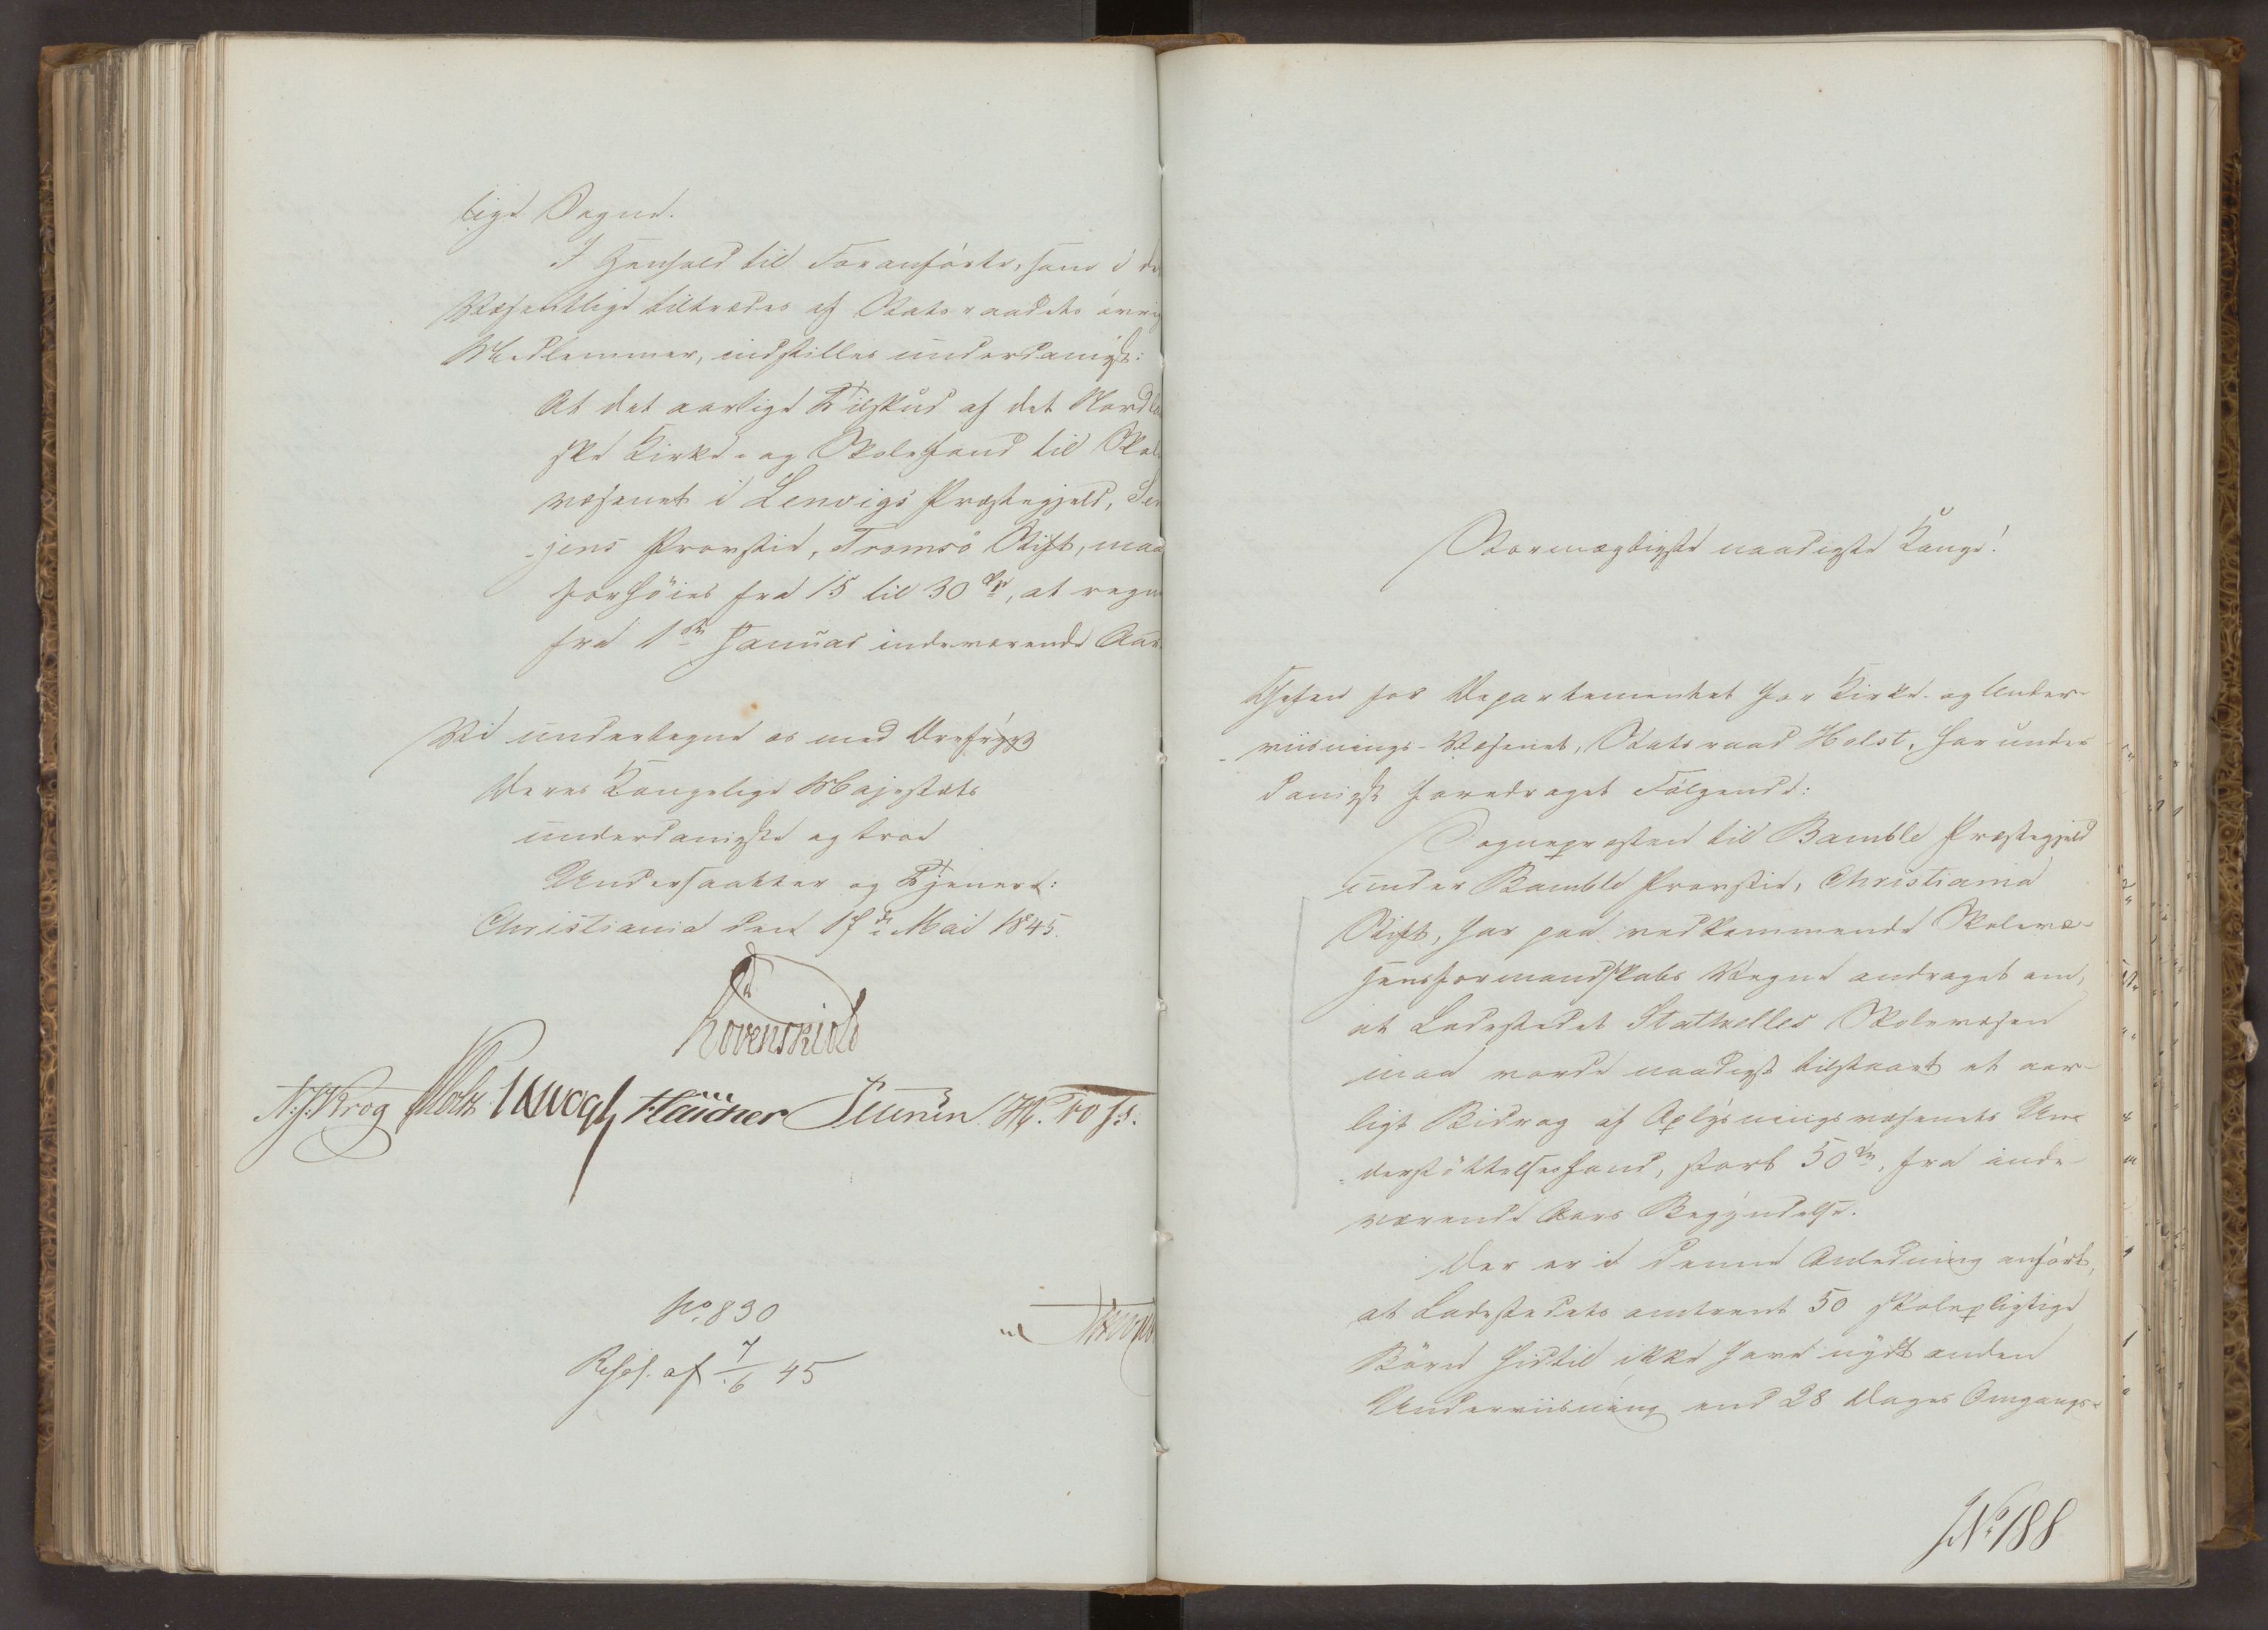 lige Sogne.
I Henhold til Foranførte, som i de
Væsentlige tiltrædes af Statsraadets øvrig
Medlemmer, indstilles underdanigst:
At det aarlige Tilskud af det Nordla
ske Kirke- og Skolefond til Skol
væsenet i Lenvigs Præstegjeld, Sen
jens Provstie, Tromsö Stift, maa
forhöies fra 15 til 30 Spd, at regn
fra 1ste Januar indeværende Aar.
Vi undertegne os med Ærefrygt
Deres Kongelige Majestæts
underdanigste og troe
Undersaatter og Tjenere:
Christiania den 17de Mai 1845.
Løvenskiold
N. J. Krog Holst J H Vogt Fleischer Petersen
No. 890
Resol. af 7/6 45
Stormægtigste naadigste Konge!
Chefen for Departementet for Kirke- og Under-
viisnings-Væsenet, Statsraad Holst, har under
danigst foredraget Følgende:
Sognepræsten til Bamble Præstegjeld
under Bamble Provstie, Christiania
Stift, har paa vedkommende Skolevæ-
sensformandskabs Vegne andraget om,
at Ladestedet Stathelles Skolevæsen
maa vorde naadigst tilstaaet et aar-
ligt Bidrag af Oplysningsvæsenets Un-
derstöttelsesfond, stort 50 Spd, fra inde-
værende Aars Begyndelse.
Der er i denne Anledning anført,
at Ladestedets omtrent 50 skolepligtige
Börn hidtil ikke have nydt anden
Underviisning end 28 Dages Omgangs-
No. 188